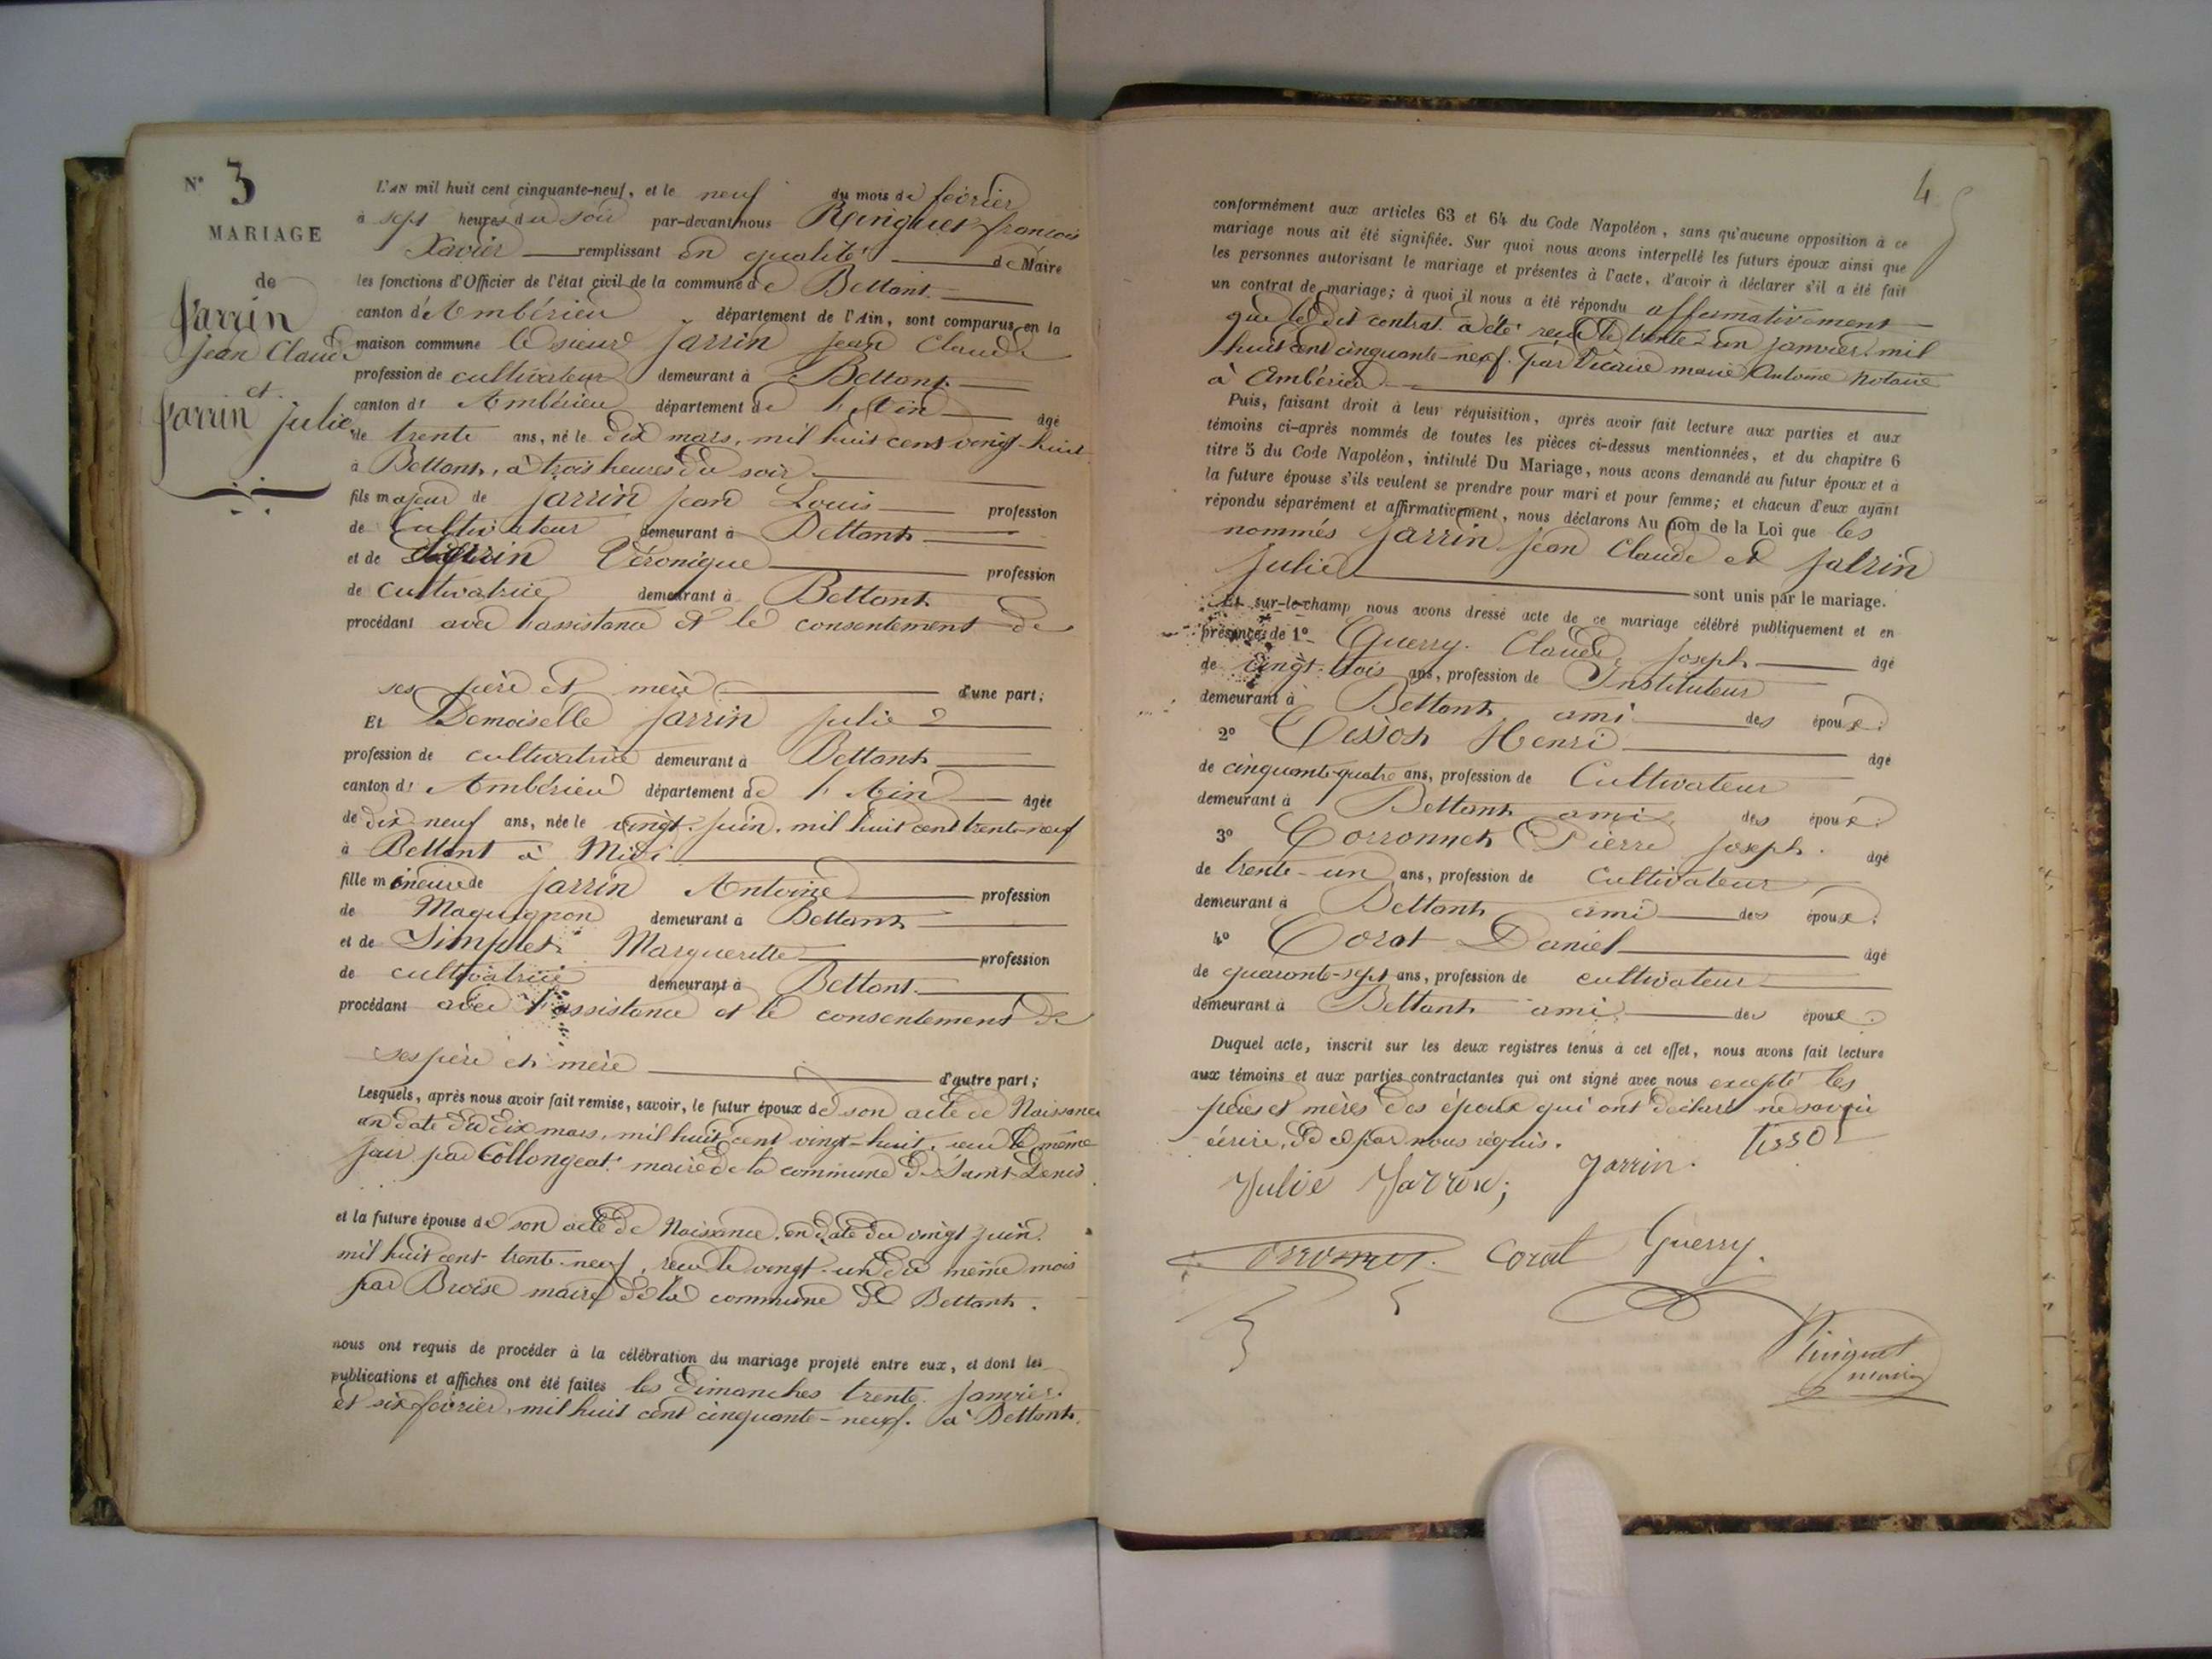 N° 3
MARIAGE
de
Jarrin
Jean Claude
et
Jarrin Julie
L'AN mil huit cent cinquante-neuf, et le neuf du mois de février
à sept heures du soir par-devant nous Ringuet françois
Xavier remplissant en qualité de Maire
les fonctions d'Officier de l'état civil de la commune de Bettant
canton d'Ambérieu département de l'Ain, sont comparus en la
maison commune le sieur Jarrin Jean Claude
profession de cultivateur demeurant à Bettant
canton d' Ambérieu département de l'Ain âgé
de trente ans, né le dix mars, mil huit cent vingt-huit
à Bettant, à trois heures du soir
fils majeur de Jarrin Jean Louis profession
de Cultivateur demeurant à Bettant
et de Jarrin Véronique profession
de cultivatrice demeurant à Bettant
procédant avec l'assistance et le consentement de
ses père et mère d'une part;
Et Demoiselle Jarrin Julie
profession de cultivatrice demeurant à Bettant
canton d' Ambérieu département de l'Ain âgée
de dix neuf ans, née le vingt juin, mil huit cent trente-neuf
à Bettant à Midi
fille mineure de Jarrin Antoine profession
de Maquignon demeurant à Bettant
et de Simplet Marguerite profession
de cultivatrice demeurant à Bettant
procédant avec l'assistance et le consentement de
ses père et mère d'autre part;
Lesquels, après nous avoir fait remise, savoir, le futur époux de son acte de Naissance
en date du dix mars, mil huit cent vingt-huit, reçu le même
jour par Collongeat maire de la commune de Saint-Denis
et la future épouse de son acte de Naissance, en date du vingt juin
mil huit cent trente-neuf, reçu le vingt-un du même mois
par Broise maire de la commune de Bettant.
nous ont requis de procéder à la célébration du mariage projeté entre eux, et dont les
publications et affiches ont été faites les Dimanches trente janvier
et six février, mil huit cent cinquante-neuf. à Bettant.
4
conformément aux articles 63 et 64 du Code Napoléon, sans qu'aucune opposition à ce
mariage nous ait été signifiée. Sur quoi nous avons interpellé les futurs époux ainsi que
les personnes autorisant le mariage et présentes à l'acte, d'avoir à déclarer s'il a été fait
un contrat de mariage; à quoi il nous a été répondu affirmativement
que le dit contrat a été reçu le trente-un janvier mil
huit cent cinquante-neuf. par Vicaire marie Antoine Notaire
à Ambérieu
Puis, faisant droit à leur réquisition, après avoir fait lecture aux parties et aux
témoins ci-après nommés de toutes les pièces ci-dessus mentionnées, et du chapitre 6
titre 5 du Code Napoléon, intitulé Du Mariage, nous avons demandé au futur époux et à
la future épouse s'ils veulent se prendre pour mari et pour femme; et chacun d'eux ayant
répondu séparément et affirmativement, nous déclarons Au nom de la Loi que les
nommés Jarrin Jean Claude et Jarrin
Julie
sont unis par le mariage.
Et sur-le-champ nous avons dressé acte de ce mariage célébré publiquement et en
présence de 1° Guerry Claude Joseph âgé
de vingt-trois ans, profession de Instituteur
demeurant à Bettant ami des époux.
2° Tissot Henri âgé
de cinquante-quatre ans, profession de Cultivateur
demeurant à Bettant ami des époux.
3° Corronnet Pierre Joseph. âgé
de trente-un ans, profession de Cultivateur
demeurant à Bettant ami des époux.
4° Corat Daniel âgé
de quarante-sept ans, profession de cultivateur
demeurant à Bettant ami des époux.
Duquel acte, inscrit sur les deux registres tenus à cet effet, nous avons fait lecture
aux témoins et aux parties contractantes qui ont signé avec nous excepté les
pères et mères des époux qui ont déclaré ne savoir
écrire, de ce par nous requis. Tissot
Julie Jarrin; Jarrin.
Corat Guerry.
Ringuet
maire